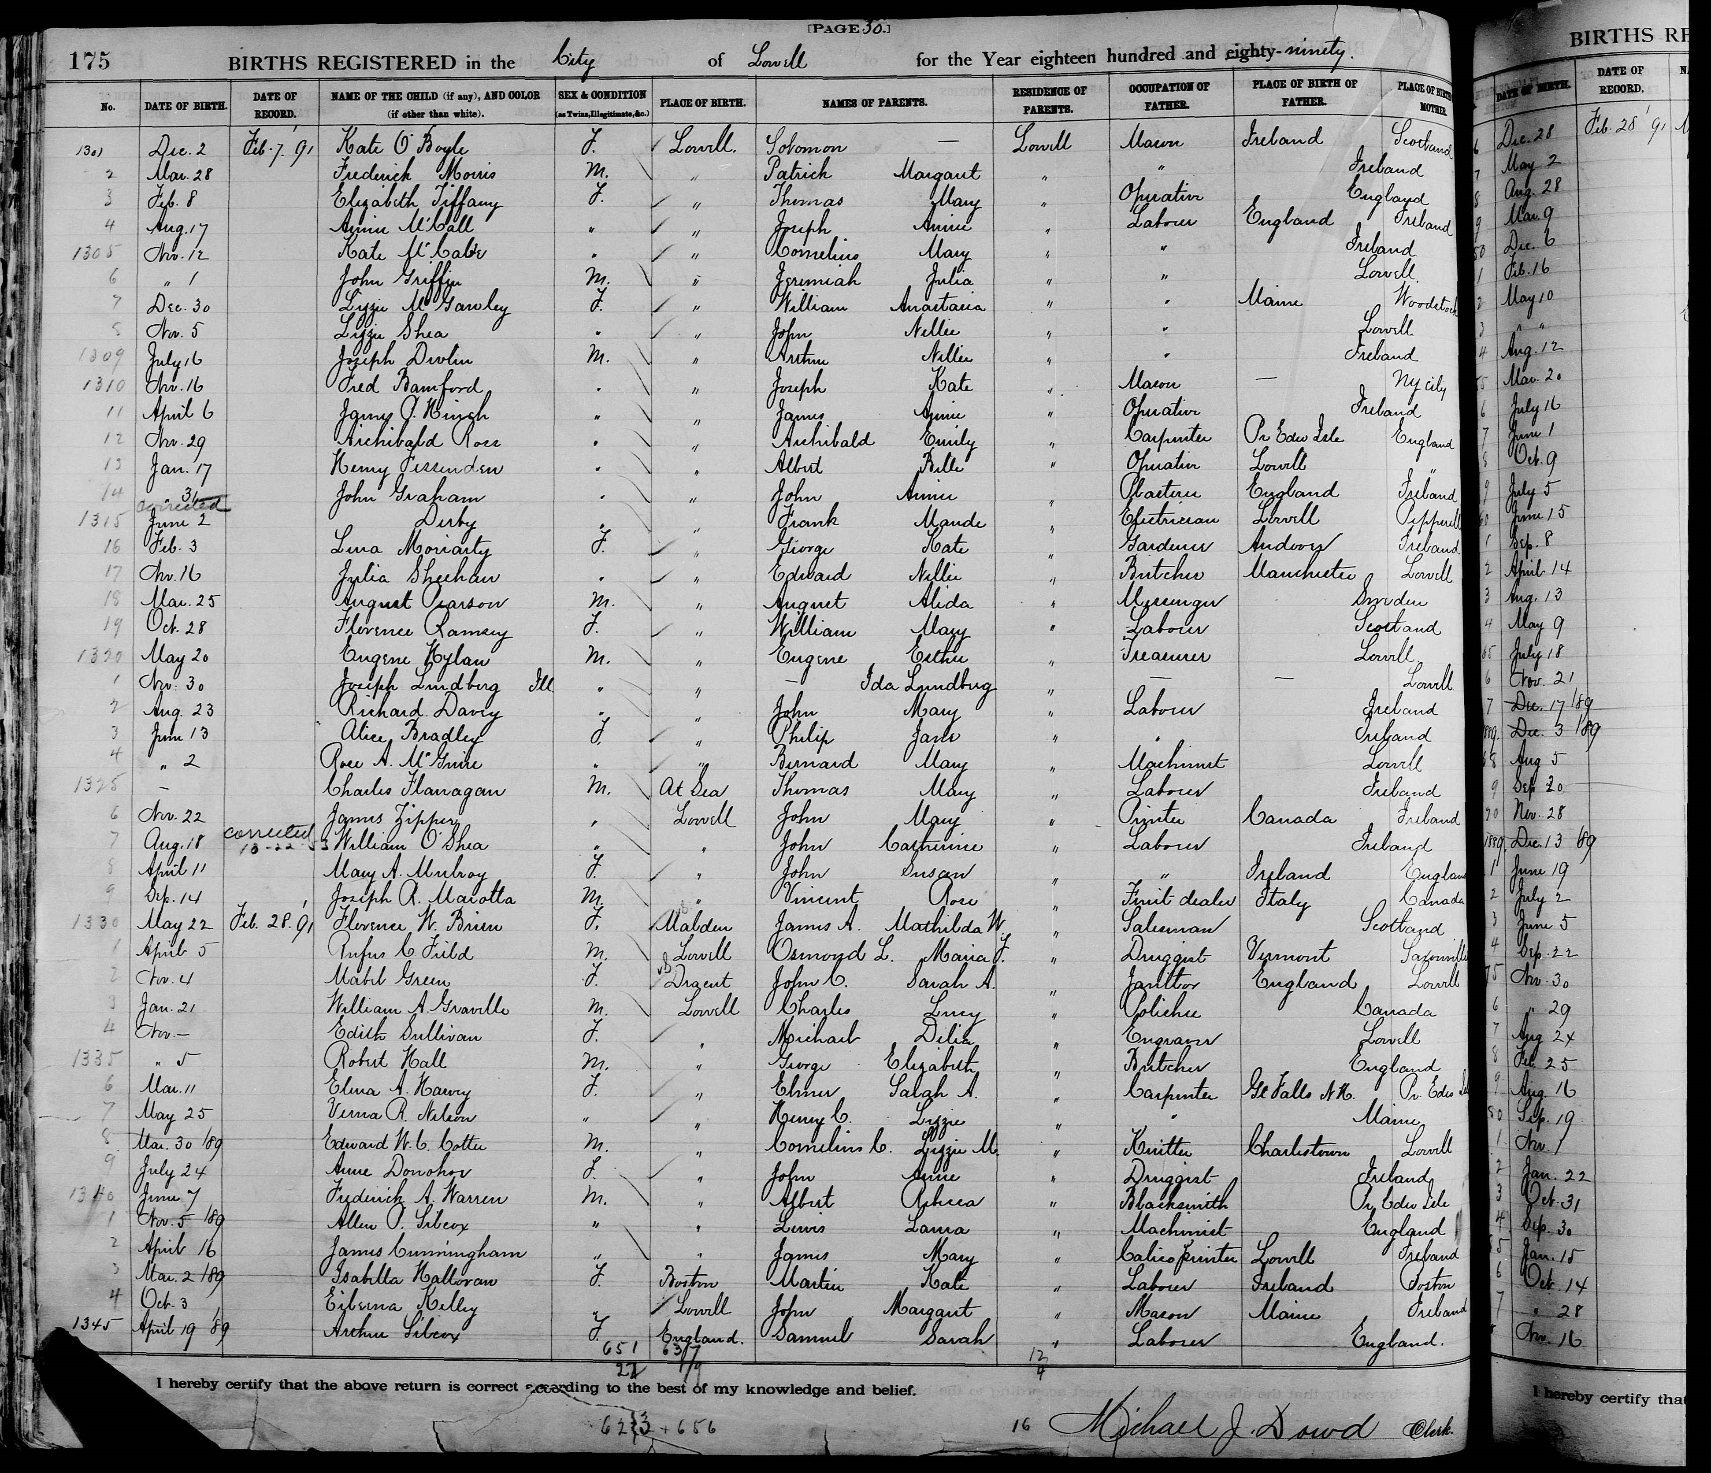 [PAGE 30.]
175 BIRTHS REGISTERED in the City of Lowell for the Year eighteen hundred and eighty-ninety.
No. DATE OF BIRTH. DATE OF RECORD. NAME OF THE CHILD (if any), AND COLOR (if other than white). SEX & CONDITION (as Twins, Illegitimate, &c.) PLACE OF BIRTH. NAMES OF PARENTS. RESIDENCE OF PARENTS. OCCUPATION OF FATHER. PLACE OF BIRTH OF FATHER. PLACE OF BIRTH MOTHER
1301 Dec. 2 Feb. 7, '91 Kate O'Boyle F. Lowell. Solomon — Lowell Mason Ireland Scotland
2 Mar. 28 Frederick Morris M. " Patrick Margaret " " Ireland
3 Feb. 8 Elizabeth Tiffany F. " Thomas Mary " Operative England
4 Aug. 17 Annie McCall " " Joseph Annie " Laborer England Ireland
1305 Nov. 12 Kate McCabe " " Cornelius Mary " " Ireland
6 " 1 John Griffin M. " Jeremiah Julia " " Lowell
7 Dec. 30 Lizzie McGawley F. " William Anastasia " " Maine Woodstock
8 Nov. 5 Lizzie Shea " " John Nellie " " Lowell
1309 July 16 Joseph Devlin M. " Arthur Nellie " " Ireland
1310 Nov. 16 Fred Bamford " " Joseph Kate " Mason — NY city
11 April 6 James P. Hinch " " James Annie " Operative Ireland
12 Nov. 29 Archibald Rose " " Archibald Emily " Carpenter Pr Edw Isle England
13 Jan. 17 Henry Fessenden " " Albert Belle " Operative Lowell "
14 " 31 John Graham " " John Annie " Plasterer England Ireland
corrected
1315 June 2 Derby " " Frank Maude " Electrician Lowell Pepperell
16 Feb. 3 Lena Moriarty F. " George Kate " Gardener Andover Ireland
17 Nov. 16 Julia Sheehan " " Edward Nellie " Butcher Manchester Lowell
18 Mar. 25 August Pearson M. " August Alida " Messenger Sweden
19 Oct. 28 Florence Ramsey F. " William Mary " Laborer Scotland
1320 May 20 Eugene Hylan M. " Eugene Esther " Treasurer Lowell
1 Nov. 30 Joseph Lundberg Ill " " — Ida Lundberg " — — Lowell
2 Aug. 23 Richard Davey " " John Mary " Laborer Ireland
3 June 13 Alice Bradley F. " Philip Jane " " Ireland
4 " 2 Rose A. McGuire " " Bernard Mary " Machinist Lowell
1325 — Charles Flanagan M. At Sea Thomas Mary " Laborer Ireland
6 Nov. 22 James Zipper " Lowell John Mary " Printer Canada Ireland
corrected
7 Aug. 18 10-22-53 William O'Shea " " John Catherine " Laborer Ireland
8 April 11 Mary A. Mulroy F. " John Susan " " Ireland England
9 Sep. 14 Joseph R. Marotta M. " Vincent Rose " Fruit dealer Italy Canada
1330 May 22 Feb. 28. '91 Florence W. Brien F. Malden James A. Mathilda W. " Salesman Scotland
1 April 5 Rufus C. Field M. Lowell Osmond L. Maria F. " Druggist Vermont Saxonville
2 Nov. 4 Mabel Green F. Dracut John C. Sarah A. " Janitor England Lowell
3 Jan. 21 William A Graville M. Lowell Charles Lucy " Polisher Canada
4 Nov. — Edith Sullivan F. " Michael Delia " Engraver Lowell
1335 " 5 Robert Hall M. " George Elizabeth " Butcher England
6 Mar. 11 Elena A. Harvey F. " Elmer Sarah A. " Carpenter Gt Falls N.H. Pr. Edw Isle
7 May 25 Verna R. Nelson " " Henry C. Lizzie " " Maine
8 Mar. 30 '89 Edward W. C. Cotter M. " Cornelius C. Lizzie M. " Knitter Charlestown Lowell
9 July 24 Anne Donohoe F. " John Annie " Druggist Ireland
1340 June 7 Frederick A. Warren M. " Albert Rebecca " Blacksmith Pr Edw Isle
1 Nov. 5 '89 Allen P. Silcox " " Lewis Laura " Machinist England
2 April 16 James Cunningham " " James Mary " Calico printer Lowell Ireland
3 Mar. 2 '89 Isabella Halloran F. Boston Martin Kate " Laborer Ireland Boston
4 Oct. 3 Kelley " Lowell John Margaret " Mason Maine Ireland
1345 April 19 '89 Arthur Silcox F. England. Samuel Sarah " Laborer England.
651 637 12
9 4
I hereby certify that the above return is correct according to the best of my knowledge and belief.
+ 656 16 Michael J. Dowd Clerk.
BIRTHS RE
DATE OF BIRTH. DATE OF RECORD.
6 Dec. 28 Feb. 28 '91
7 May 2
8 Aug. 28
9 Mar. 9
50 Dec. 6
1 Feb. 16
2 May 10
3 " "
4 Aug. 12
55 Mar. 20
6 July 16
7 June 1
8 Oct. 9
9 July 5
60 June 15
1 Sep. 8
2 April 14
3 Aug. 13
4 May 9
65 July 18
6 Nov. 21
7 Dec. 17 '89
1889. Dec. 3 '89
68 Aug 5
9 Sep. 20
70 Nov. 28
1889. Dec. 13 '89
1 June 19
2 July 2
3 June 5
4 Sep. 22
75 Nov. 30
6 " 29
7 Aug 24
8 Feb. 25
9 Aug. 16
80 Sep. 19
1 Nov. 1
2 Jan. 22
3 Oct. 31
4 Sep. 30
85 Jan. 15
6 Oct. 14
7 " 28
Nov. 16
I hereby certify that